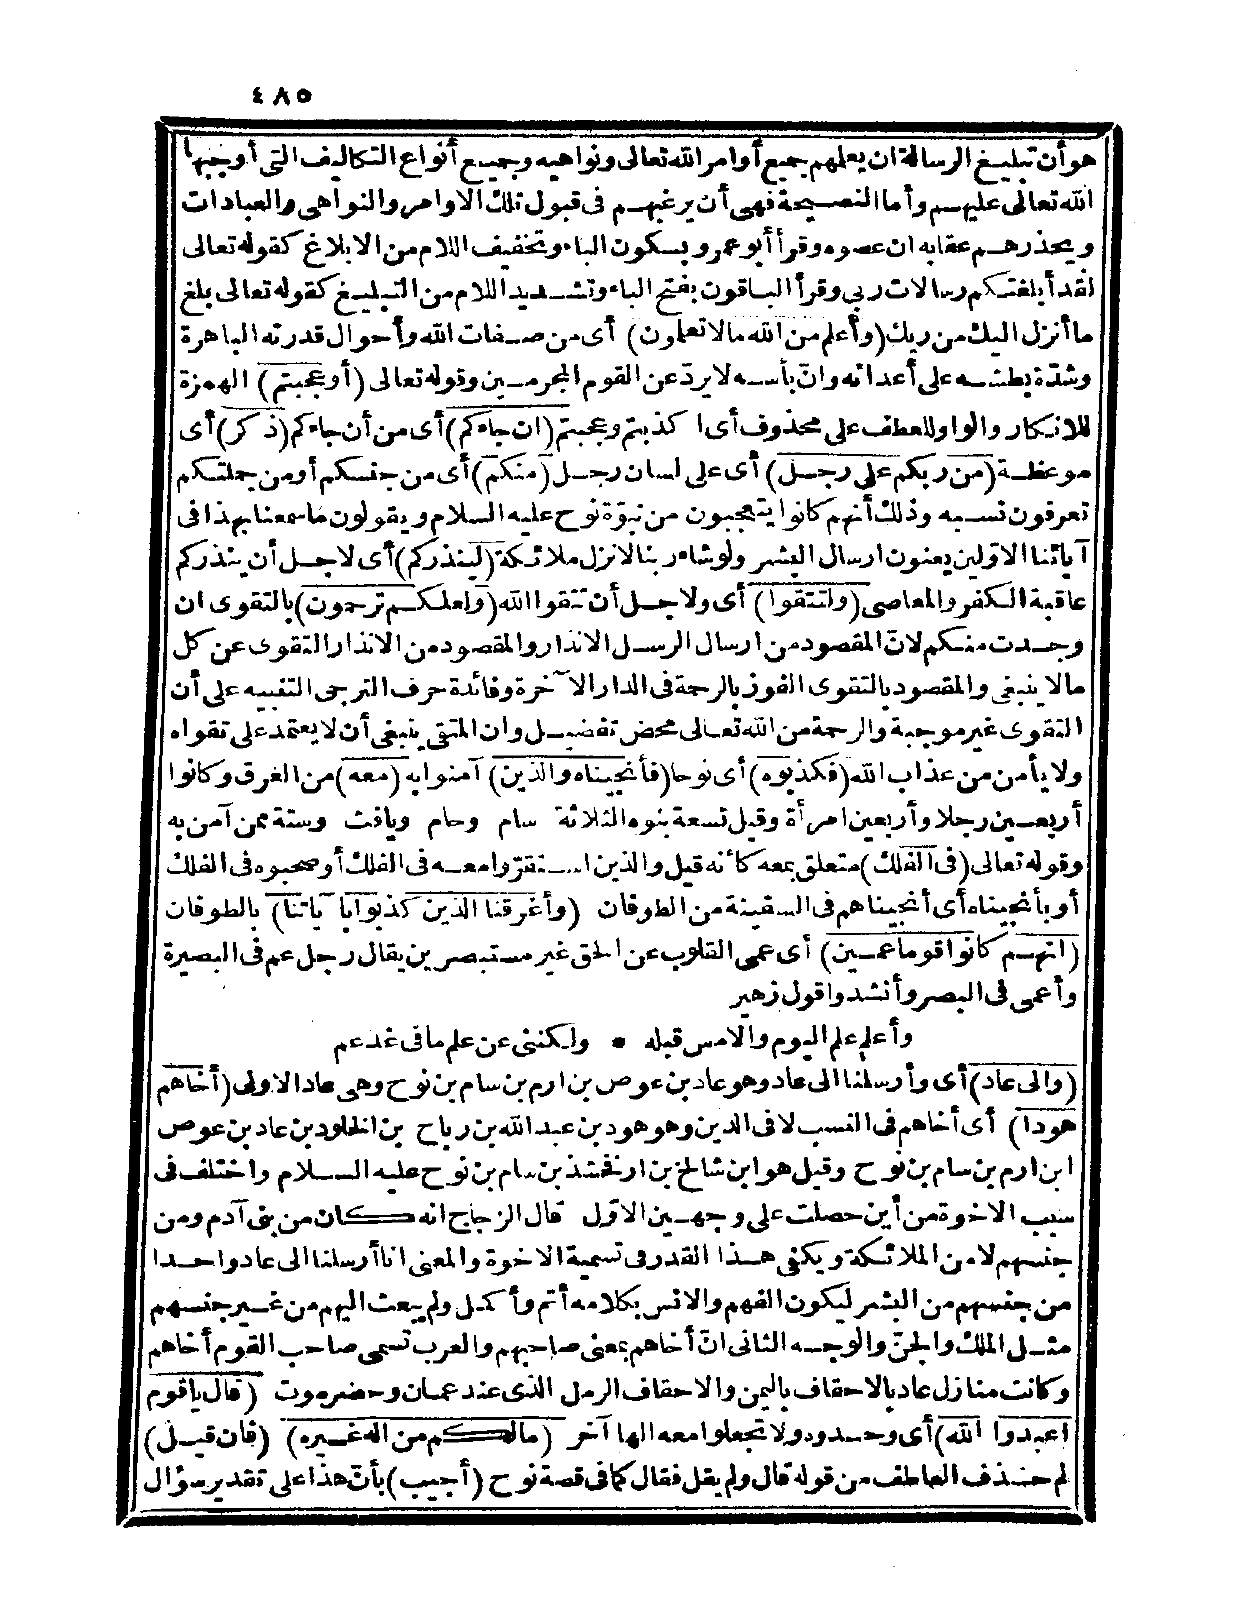 ٤٨٥
هو أن تبليغ الرسالة ان يعلمهم جميع أوامر الله تعالى ونواهيه وجميع أنواع التكاليف التى أوجبها
الله تعالى عليهم وأما النصيحة فهى أن يرغبهم فى قبول تلك الاوامر والنواهى والعبادات
ويحذرهم عقابه ان عصوه وقرأ أبو عمرو بسكون الباء وتخفيف اللام من الابلاغ كقوله تعالى
لقد أبلغتكم رسالات ربى وقرأ الباقون بفتح الباء وتشديد اللام من التبليغ كقوله تعالى بلغ
ما أنزل اليك من ربك (وأعلم من الله مالا تعلمون) أى من صفات الله وأحوال قدرته الباهرة
وشدّة بطشه على أعدائه وانّ بأسه لا يردّ عن القوم المجرمين وقوله تعالى (أوعجبتم) الهمزة
للانكار والواو للعطف على محذوف أى اكذبتم وعجبتم (ان جاءكم) أى من أن جاءكم (ذكر) أى
موعظة (من ربكم على رجل) أى على لسان رجل (منكم) أى من جنسكم أو من جملتكم
تعرفون نسبه وذلك أنهم كانوا يتعجبون من نبوّة نوح عليه السلام ويقولون ما سمعنا بهذا فى
آبائنا الاوّلين يعنون ارسال البشر ولو شاء ربنا لانزل ملائكة (لينذركم) أى لاجل أن ينذركم
عاقبة الكفر والمعاصى (ولتتقوا) أى ولاجل أن تتقوا الله (ولعلكم ترحمون) بالتقوى ان
وجدت منكم لانّ المقصود من ارسال الرسل الانذار والمقصود من الانذار التقوى عن كل
مالا ينبغى والمقصود بالتقوى الفوز بالرحمة فى الدار الآخرة وفائدة حرف الترجى التنبيه على أن
التقوى غير موجبة والرحمة من الله تعالى محض تفضيل وان المتقى ينبغى أن لا يعتمد على تقواه
ولا يأمن من عذاب الله (فكذبوه) أى نوحا (فأنجيناه والذين) آمنوا به (معه) من الغرق وكانوا
أربعين رجلا وأربعين امرأة وقيل تسعة بنوه الثلاثة سام وحام ويافث وستة ممن آمن به
وقوله تعالى (فى الفلك) متعلق بمعه كأنه قيل والذين استقرّوا معه فى الفلك أو صحبوه فى الفلك
أو بأنجيناه أى أنجيناهم فى السفينة من الطوفان (وأغرقنا الذين كذبوا بآياتنا) بالطوفان
(انهم كانوا قوما عمين) أى عمى القلوب عن الحق غير مستبصرين يقال رجل عم فى البصيرة
وأعمى فى البصر وأنشدوا قول زهير
وأعلم علم اليوم والامس قبله * ولكننى عن علم ما فى غد عم
(والى عاد) أى وأرسلنا الى عاد وهو عاد بن عوص بن ارم بن سام بن نوح وهى عاد الاولى (أخاهم
هودا) أى أخاهم فى النسب لا فى الدين وهو هود بن عبد الله بن رباح بن الخلود بن عاد بن عوص
ابن ارم بن سام بن نوح وقيل هو ابن شالخ بن ارفخشذ بن سام بن نوح عليه السلام واختلف فى
سبب الاخوة من أين حصلت على وجهين الاوّل قال الزجاج انه كان من بنى آدم ومن
جنسهم لا من الملائكة ويكفى هذا القدر فى تسمية الاخوة والمعنى انا أرسلنا الى عاد واحدا
من جنسهم من البشر ليكون الفهم والانس بكلامه أتم وأكمل ولم يبعث اليهم من غير جنسهم
مثل الملك والجنّ والوجه الثانى انّ أخاهم بمعنى صاحبهم والعرب تسمى صاحب القوم أخاهم
وكانت منازل عاد بالاحقاف باليمن والاحقاف الرمل الذى عند عمان وحضرموت (قال ياقوم
اعبدوا الله) أى وحدوه ولا تجعلوا معه الها آخر (مالكم من اله غيره) (فان قيل)
لم حذف العاطف من قوله قال ولم يقل فقال كما فى قصة نوح (أجيب) بأنّ هذا على تقدير سؤال